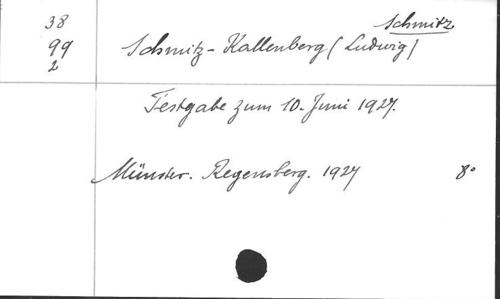 38
99
2
Schmitz
Schmitz-Kallenberg (Ludwig)
Festgabe zum 10. Juni 1927.
Münster. Regensberg. 1927 8°